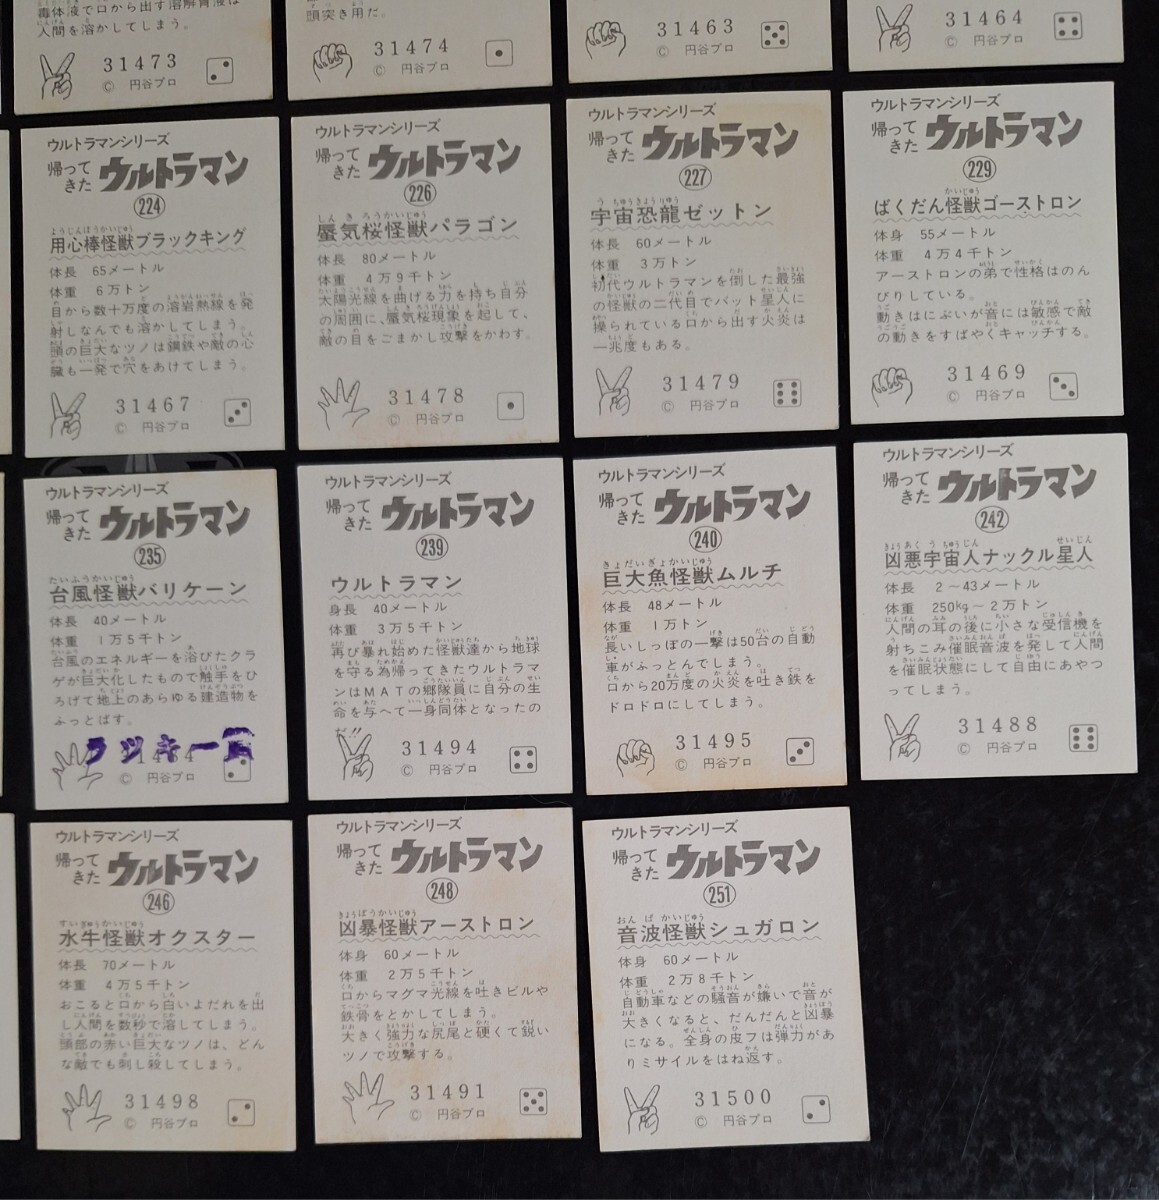 毒体液で口から出す溶解胃液は
人間を溶かしてしまう。
31473
Ⓒ 円谷プロ
頭突き用だ。
31474
Ⓒ 円谷プロ
31463
Ⓒ 円谷プロ
31464
Ⓒ 円谷プロ
ウルトラマンシリーズ
帰ってきた ウルトラマン
224
用心棒怪獣ブラックキング
体長 65メートル
体重 6万トン
目から数十万度の溶岩熱線を発
射しなんでも溶かしてしまう。
頭の巨大なツノは鋼鉄や敵の心
臓も一発で穴をあけてしまう。
31467
Ⓒ 円谷プロ
ウルトラマンシリーズ
帰ってきた ウルトラマン
226
蜃気桜怪獣パラゴン
体長 80メートル
体重 4万9千トン
太陽光線を曲げる力を持ち自分
の周囲に、蜃気桜現象を起して、
敵の目をごまかし攻撃をかわす。
31478
Ⓒ 円谷プロ
ウルトラマンシリーズ
帰ってきた ウルトラマン
227
宇宙恐龍ゼットン
体長 60メートル
体重 3万トン
初代ウルトラマンを倒した最強
の怪獣の二代目でバット星人に
操られている口から出す火炎は
一兆度もある。
31479
Ⓒ 円谷プロ
ウルトラマンシリーズ
帰ってきた ウルトラマン
229
ばくだん怪獣ゴーストロン
体身 55メートル
体重 4万4千トン
アーストロンの弟で性格はのん
びりしている。
動きはにぶいが音には敏感で敵
の動きをすばやくキャッチする。
31469
Ⓒ 円谷プロ
ウルトラマンシリーズ
帰ってきた ウルトラマン
235
台風怪獣バリケーン
体長 40メートル
体重 1万5千トン
台風のエネルギーを浴びたクラ
ゲが巨大化したもので触手をひ
ろげて地上のあらゆる建造物を
ふっとばす。
ラッキー賞
Ⓒ 円谷プロ
ウルトラマンシリーズ
帰ってきた ウルトラマン
239
ウルトラマン
身長 40メートル
体重 3万5千トン
再び暴れ始めた怪獣達から地球
を守る為帰ってきたウルトラマ
ンはMATの郷隊員に自分の生
命を与へて一身同体となったの
だ!!
31494
Ⓒ 円谷プロ
ウルトラマンシリーズ
帰ってきた ウルトラマン
240
巨大魚怪獣ムルチ
体長 48メートル
体重 1万トン
長いしっぽの一撃は50台の自動
車がふっとんでしまう。
口から20万度の火炎を吐き鉄を
ドロドロにしてしまう。
31495
Ⓒ 円谷プロ
ウルトラマンシリーズ
帰ってきた ウルトラマン
242
凶悪宇宙人ナックル星人
体長 2~43メートル
体重 250kg~2万トン
人間の耳の後に小さな受信機を
射ちこみ催眠音波を発して人間
を催眠状態にして自由にあやつ
ってしまう。
31488
Ⓒ 円谷プロ
ウルトラマンシリーズ
帰ってきた ウルトラマン
246
水牛怪獣オクスター
体長 70メートル
体重 4万5千トン
おこると口から白いよだれを出
し人間を数秒で溶してしまう。
頭部の赤い巨大なツノは、どん
な敵でも刺し殺してしまう。
31498
Ⓒ 円谷プロ
ウルトラマンシリーズ
帰ってきた ウルトラマン
248
凶暴怪獣アーストロン
体身 60メートル
体重 2万5千トン
口からマグマ光線を吐きビルや
鉄骨をとかしてしまう。
大きく強力な尻尾と硬くて鋭い
ツノで攻撃する。
31491
Ⓒ 円谷プロ
ウルトラマンシリーズ
帰ってきた ウルトラマン
251
音波怪獣シュガロン
体身 60メートル
体重 2万8千トン
自動車などの騒音が嫌いで音が
大きくなると、だんだんと凶暴
になる。全身の皮フは弾力があ
りミサイルをはね返す。
31500
Ⓒ 円谷プロ